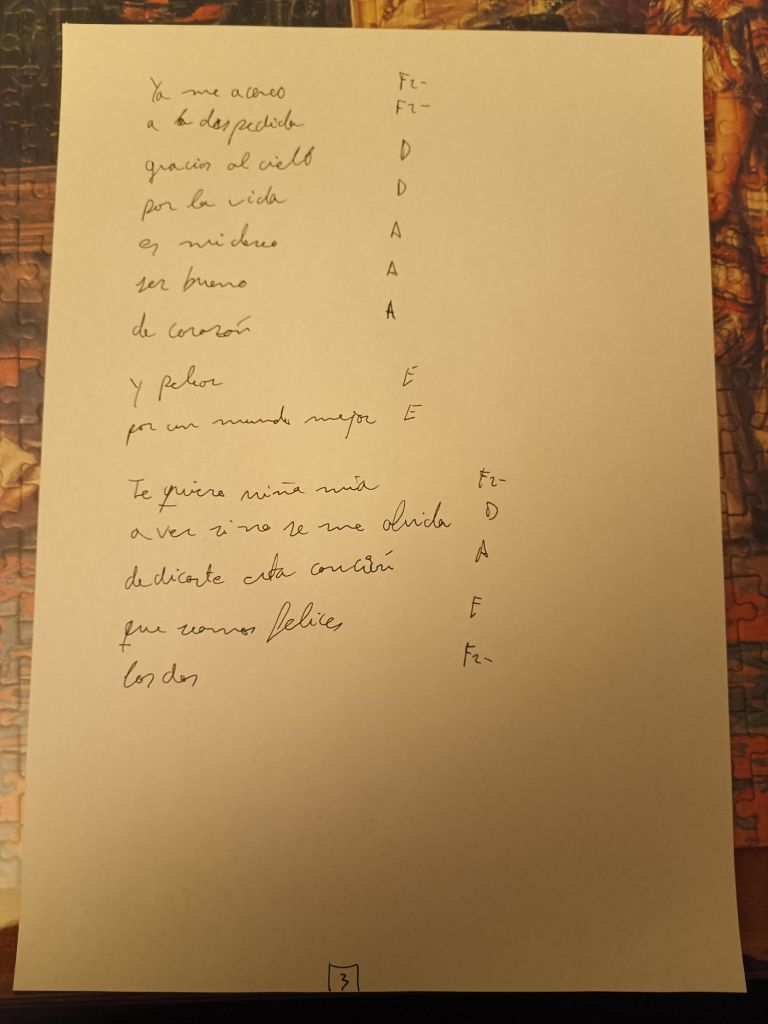 Ya me acerco F2-
a la despedida F2-
gracias al cielo D
por la vida D
es mi deseo A
ser bueno A
de corazón A
Y pelear E
por un mundo mejor E
Te quiero niña mía F2-
a ver si no se me olvida D
dedicarte esta canción A
que seamos felices E
los dos F2-
3